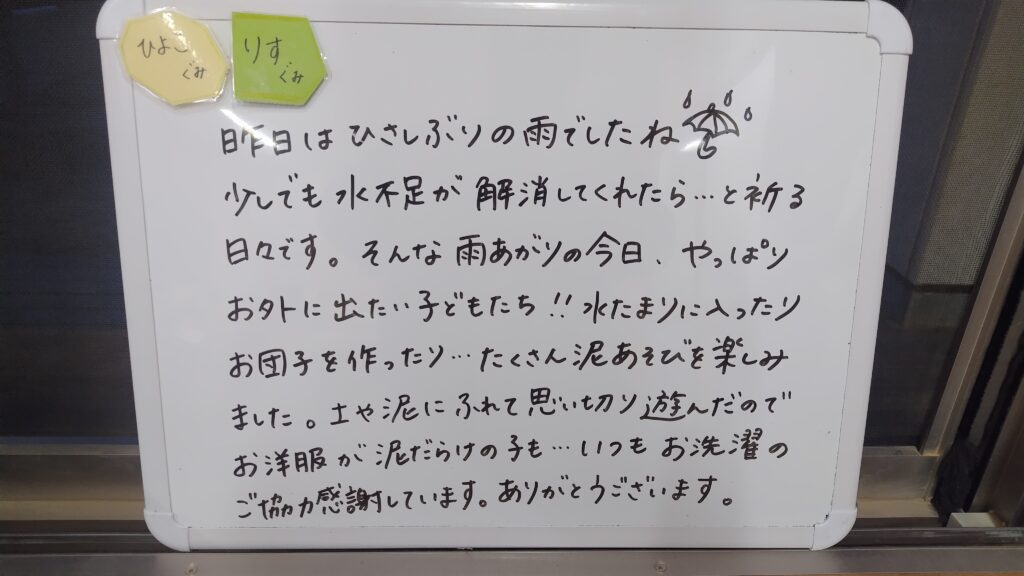 ひよこぐみ
りすぐみ
昨日はひさしぶりの雨でしたね
少しでも水不足が解消してくれたら…と祈る
日々です。そんな雨あがりの今日、やっぱり
お外に出たい子どもたち!!水たまりに入ったり
お団子を作ったり…たくさん泥あそびを楽しみ
ました。土や泥にふれて思い切り遊んだので
お洋服が泥だらけの子も…いつもお洗濯の
ご協力感謝しています。ありがとうございます。